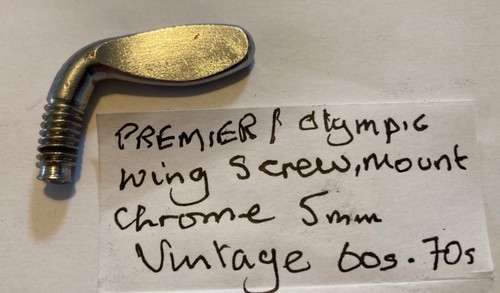 PREMIER / Olympic
wing screw, mount
chrome 5mm
Vintage 60s. 70s